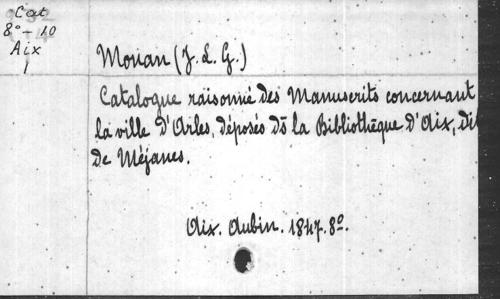 Cat
8° - 10
Aix
1
Mouan (J. L. G.)
Catalogue raisonné des Manuscrits concernant
la ville d'Arles, déposés ds la Bibliothèque d'Aix, dit
de Méjanes.
Aix. Aubin. 1847. 8°.